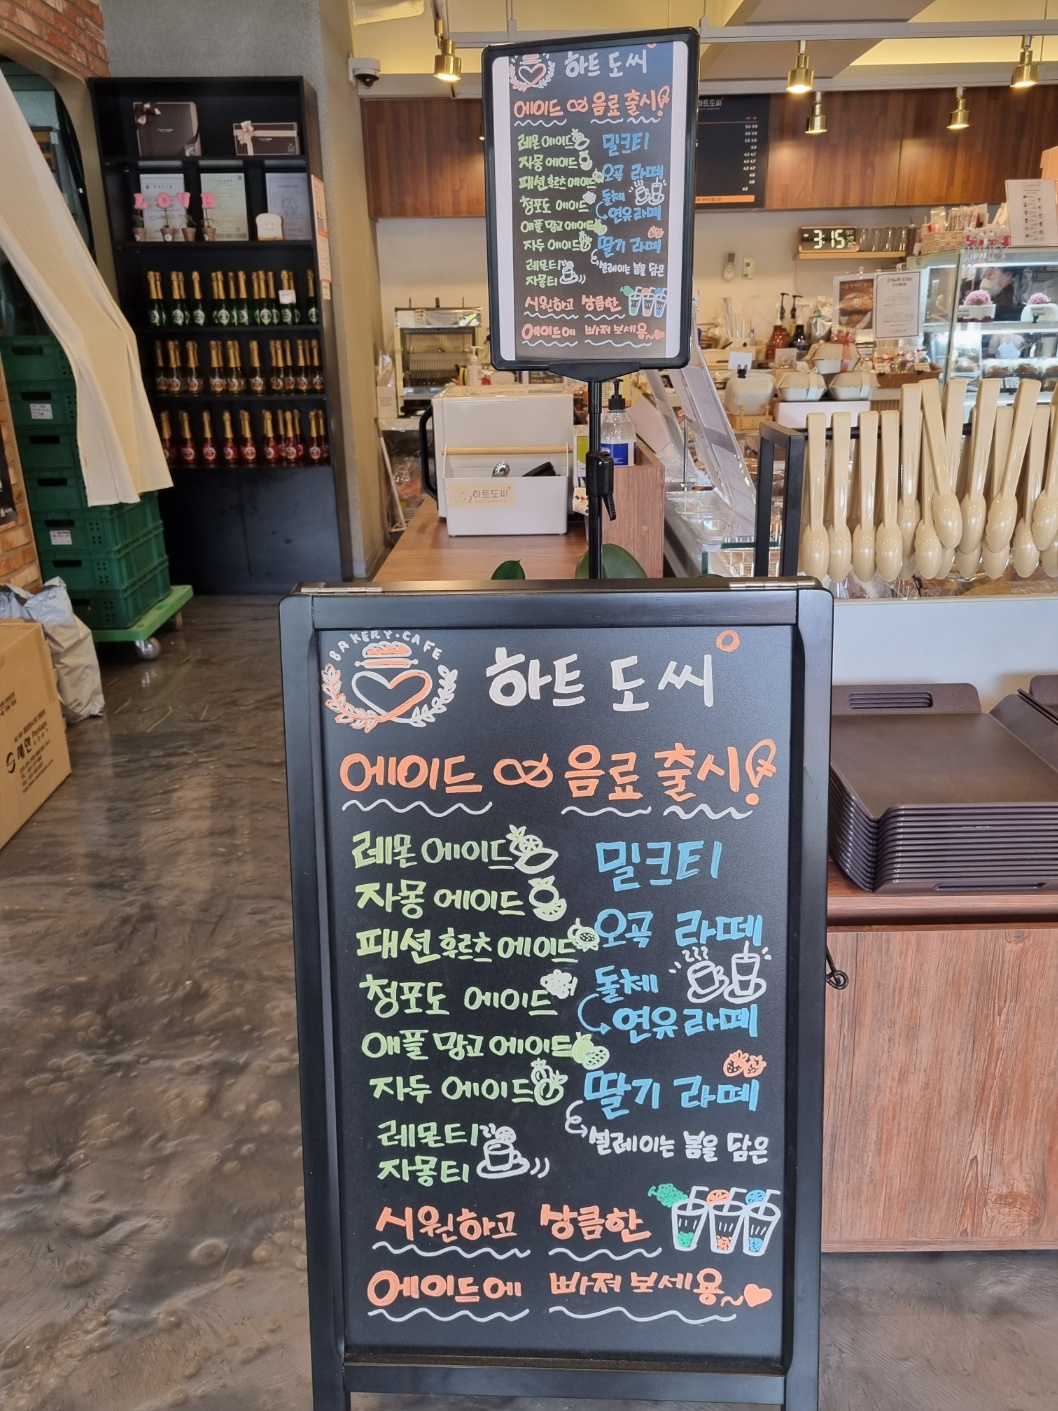 하트도씨°
에이드 음료 출시!
레몬 에이드 밀크티
자몽 에이드
패션후르츠 에이드 오곡 라떼
청포도 에이드 돌체
연유라떼
애플망고 에이드
자두 에이드 딸기 라떼
레몬티 설레이는 봄을 담은
자몽티
시원하고 상큼한
에이드에 빠져보세용~
LOVE
3:15
하트도씨
하트도씨
BAKERY·CAFE
하트 도씨°
에이드 음료 출시!
레몬 에이드 밀크티
자몽 에이드
오곡 라떼
패션후르츠 에이드
청포도 에이드 돌체
연유라떼
애플망고 에이드
자두 에이드 딸기 라떼
레몬티 설레이는 봄을 담은
자몽티
시원하고 상큼한
에이드에 빠져보세용~